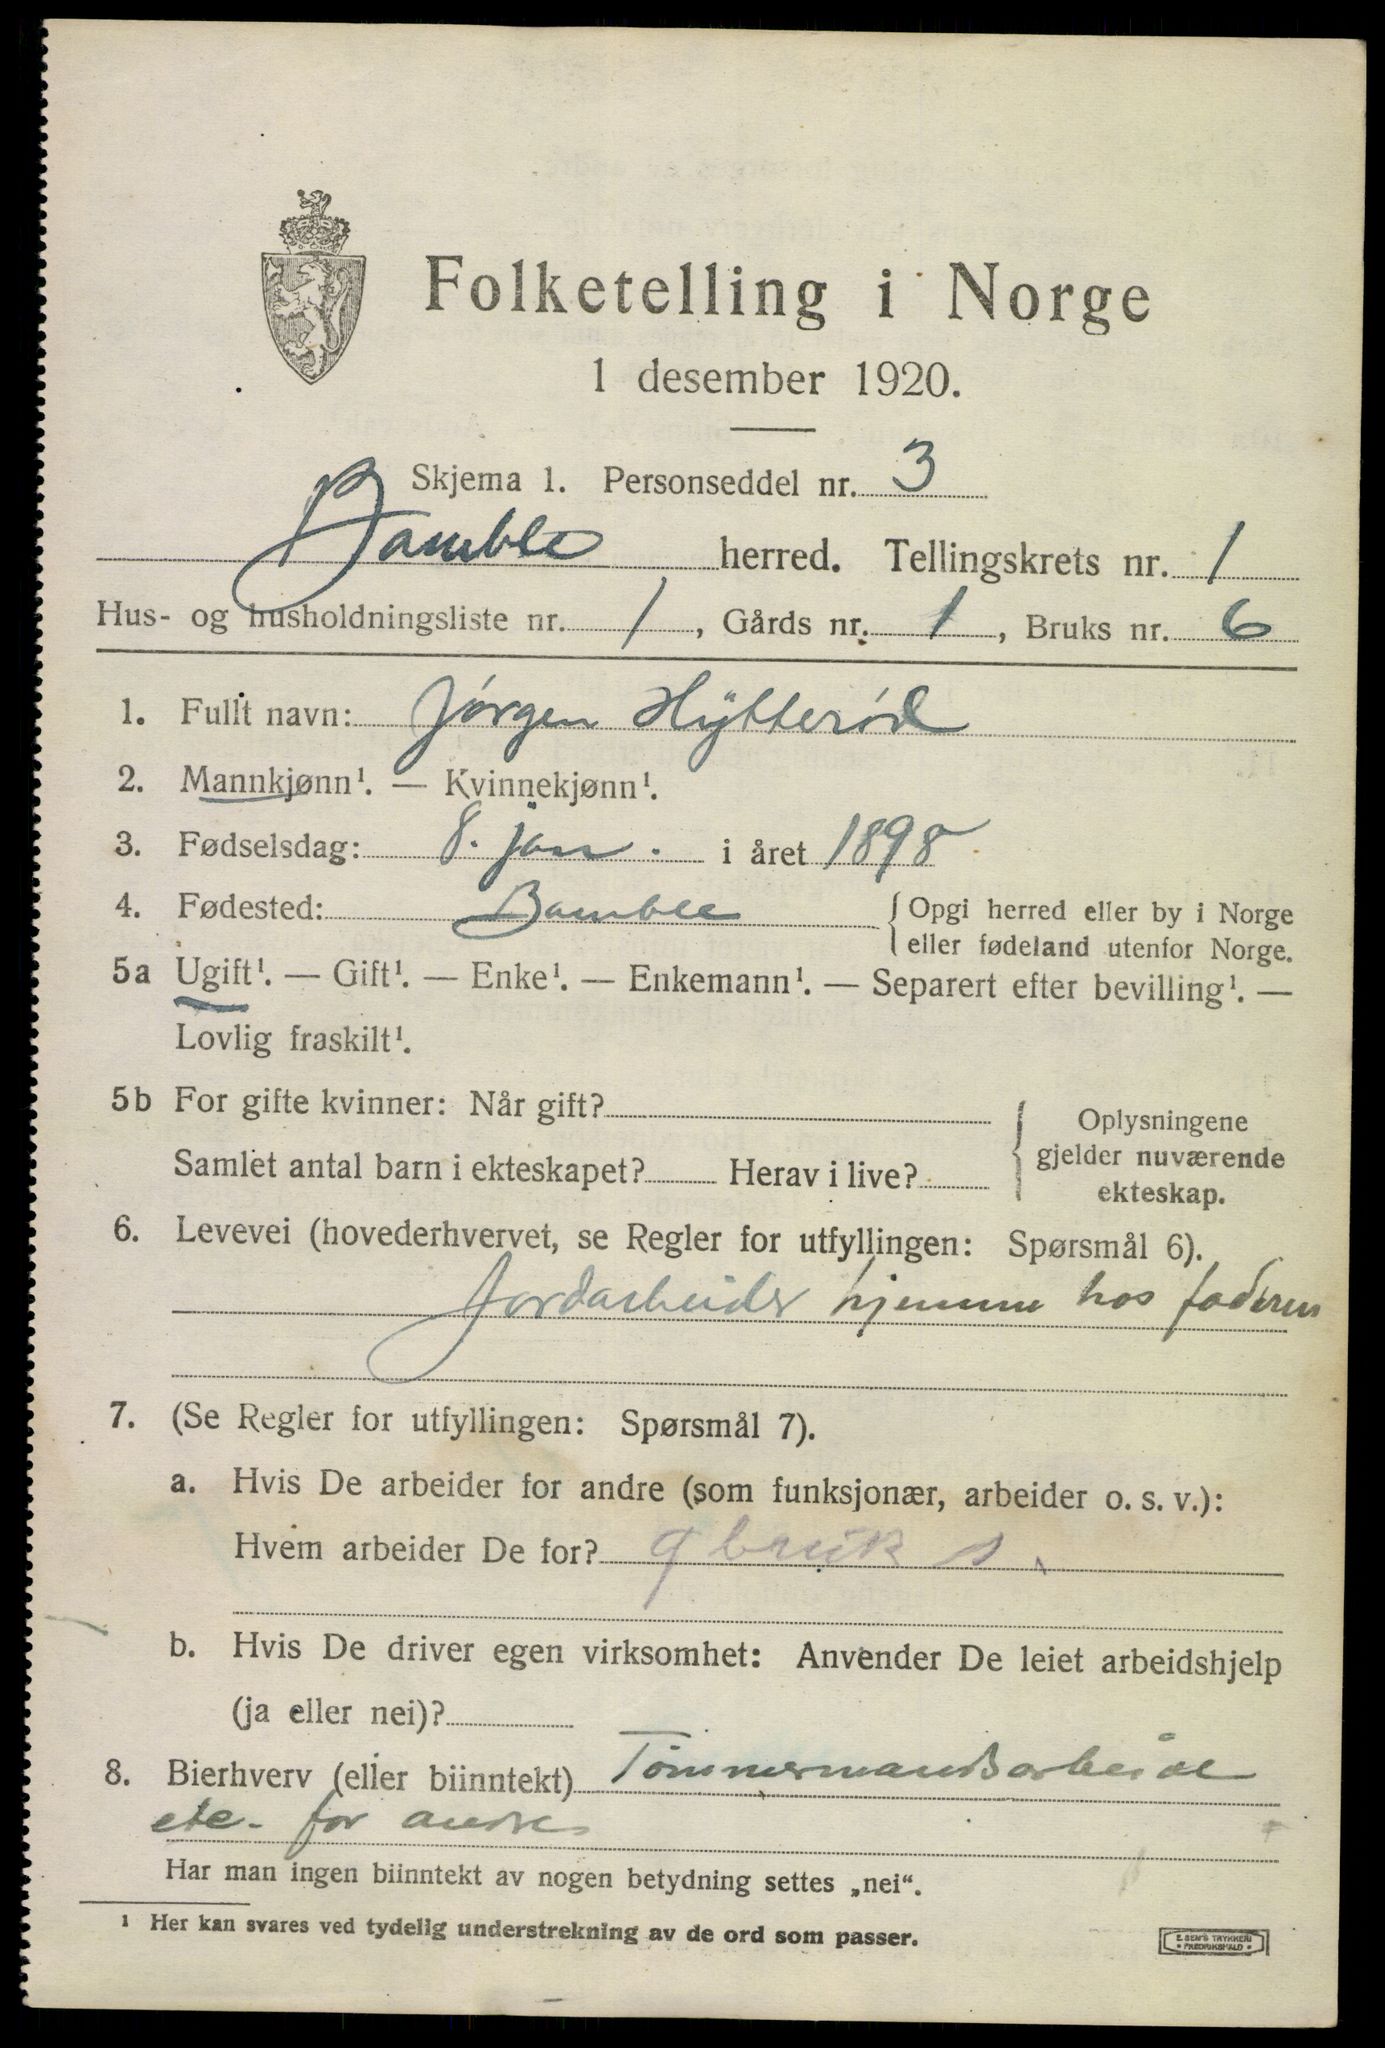 Folketelling i Norge
1 desember 1920.
Skjema 1. Personseddel nr. 3
Bamble herred. Tellingskrets nr. 1
Hus- og husholdningsliste nr. 1, Gårds nr. 1, Bruks nr. 6
1. Fullt navn: Jørgen Hytterød
2. Mannkjønn¹. — Kvinnekjønn¹.
3. Fødselsdag: 8. jan. i året 1898
4. Fødested: Bamble { Opgi herred eller by i Norge
eller fødeland utenfor Norge.
5a Ugift¹. — Gift¹. — Enke¹. — Enkemann¹. — Separert efter bevilling¹. —
Lovlig fraskilt¹.
5b For gifte kvinner: Når gift?
Samlet antal barn i ekteskapet? Herav i live?
{ Oplysningene
gjelder nuværende
ekteskap.
6. Levevei (hovederhvervet, se Regler for utfyllingen: Spørsmål 6).
Jordarbeider hjemme hos faderen
7. (Se Regler for utfyllingen: Spørsmål 7).
a. Hvis De arbeider for andre (som funksjonær, arbeider o. s. v.):
Hvem arbeider De for? gbruk s
b. Hvis De driver egen virksomhet: Anvender De leiet arbeidshjelp
(ja eller nei)?
8. Bierhverv (eller biinntekt) Tømmermandsarbeide
etc. for andre
Har man ingen biinntekt av nogen betydning settes „nei“.
¹ Her kan svares ved tydelig understrekning av de ord som passer.
E. SEM'S TRYKKERI
• FREDRIKSHALD •